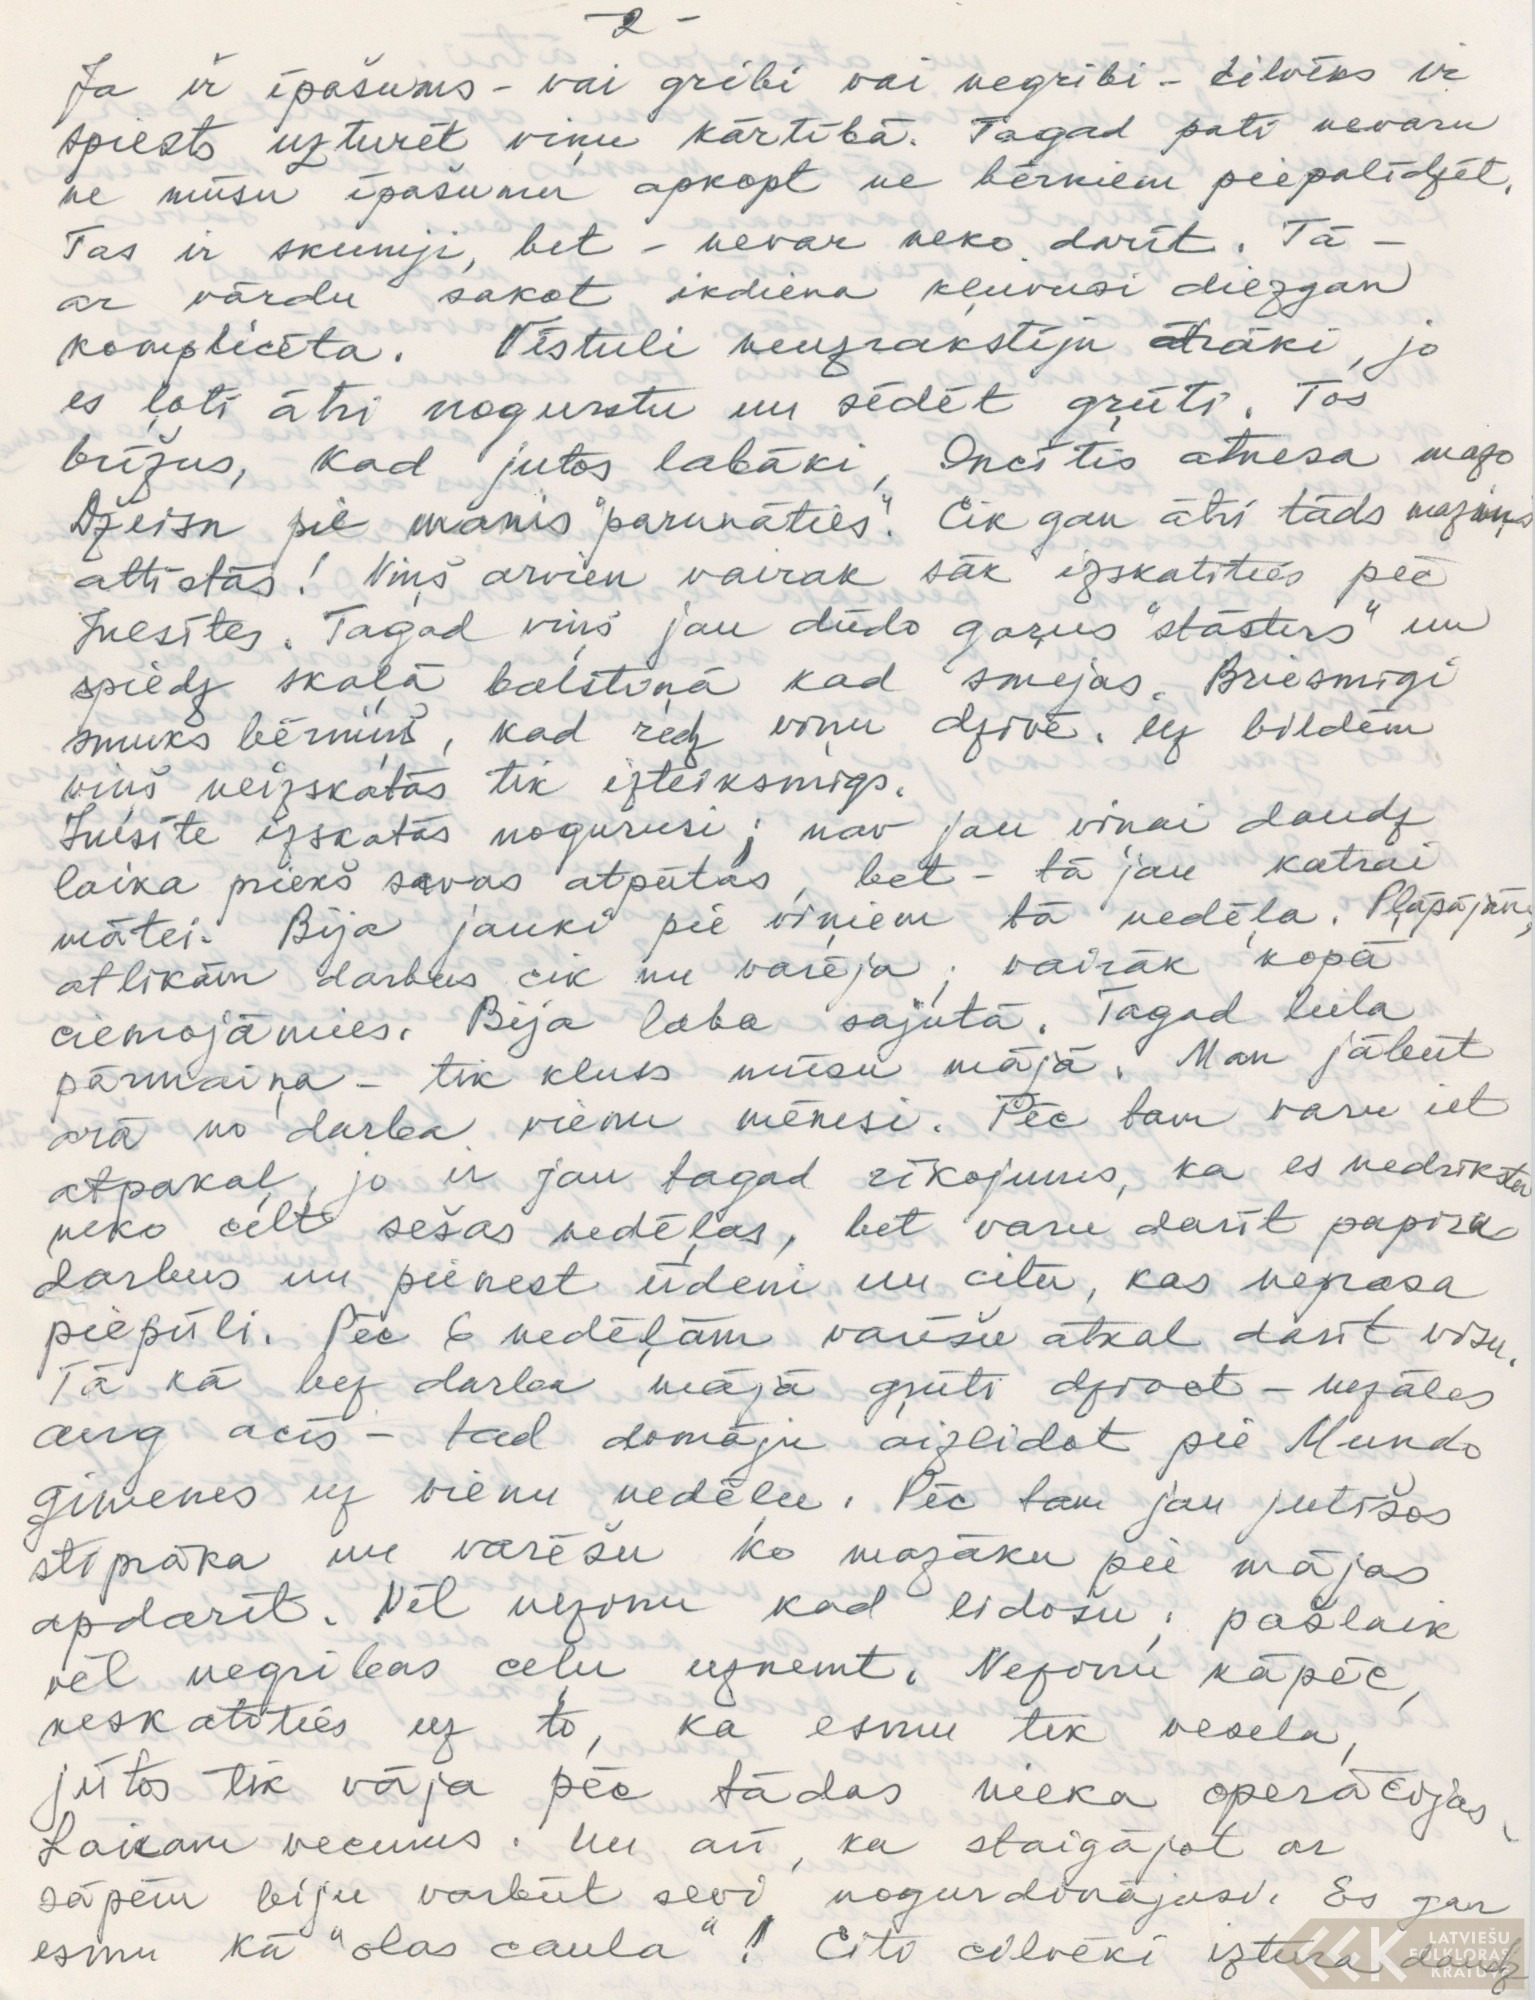 -2-
Ja ir īpašums - vai gribi vai negribi - cilvēks ir
spiests uzturēt viņu kārtībā. Tagad pati nevaru
ne mūsu īpašumu apkopt ne bērniem piepalīdzēt.
Tas ir skumji, bet - nevar neko darīt. Tā -
ar vārdu sakot ikdiena kļuvusi diezgan
komplicēta. Vēstuli neuzrakstīju ātrāki, jo
es ļoti ātri nogurstu un sēdēt grūti. Tos
brīžus, kad jutos labāki, Incītis atnesa mazo
Džeisn pie manis "parunāties". Cik gan ātri tāds maziņš
attīstās! Viņš arvien vairāk sāk izskatīties pēc
Inesītes. Tagad viņš jau dūdo garus "stāstus" un
spiedz skaļā balstiņā kad smejas. Briesmīgi
smuks bērniņš, kad redz viņu dzīvē. Uz bildēm
viņš neizskatās tik izteiksmīgs.
Inesīte izskatās nogurusi; nav jau viņai daudz
laika priekš savas atpūtas, bet - tā jau katrai
mātei. Bija jauki pie viņiem tā nedēļa. Pļāpājām,
atlikām darbus cik nu varēja; vairāk kopā
ciemojāmies. Bija laba sajūta. Tagad liela
pārmaiņa - tik kluss mūsu mājā. Man jābūt
ārā no darba vienu mēnesi. Pēc tam varu iet
atpakaļ, jo ir jau tagad rīkojums, ka es nedrīkstu
neko celt sešas nedēļas, bet varu darīt papīra
darbus un pienest ūdeni un citu, kas neprasa
piepūli. Pēc 6 nedēļām varēšu atkal darīt visu.
Tā kā bez darba mājā grūti dzīvot - nezāles
aug acīs - tad domāju aizlidot pie Mundo
ģimenes uz vienu nedēļu. Pēc tam jau jutīšos
stiprāka un varēšu ko mazāku pie mājas
apdarīt. Vēl nezinu kad lidošu; pašlaik
vēl negribas ceļu uzņemt. Nezinu kāpēc,
neskatoties uz to, ka esmu tik vesela,
jūtos tik vāja pēc tādas nieka operācijas.
Laikam vecums. Un arī, ka staigājot ar
sāpēm biju varbūt sevi nogurdinājusi. Es gan
esmu kā "olas čaula"! Citi cilvēki iztura daudz
LATVIEŠU
FOLKLORAS
KRĀTUVE